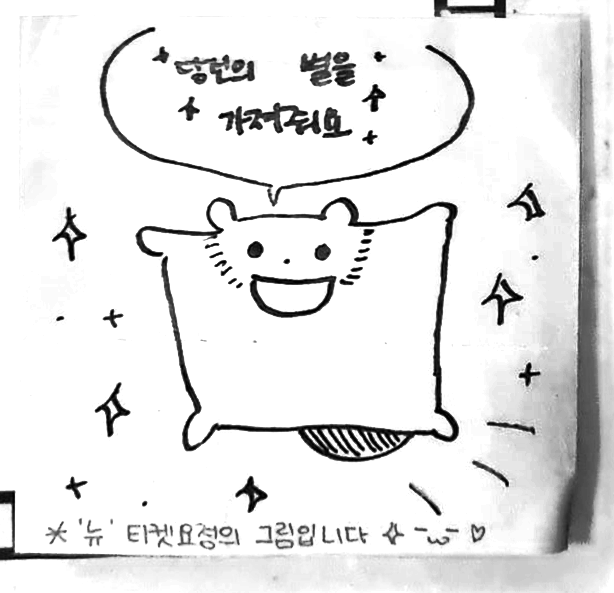 당신의 별을
가져워요
* '뉴' 티켓요정의 그림입니다 ✧ -ω- ♡